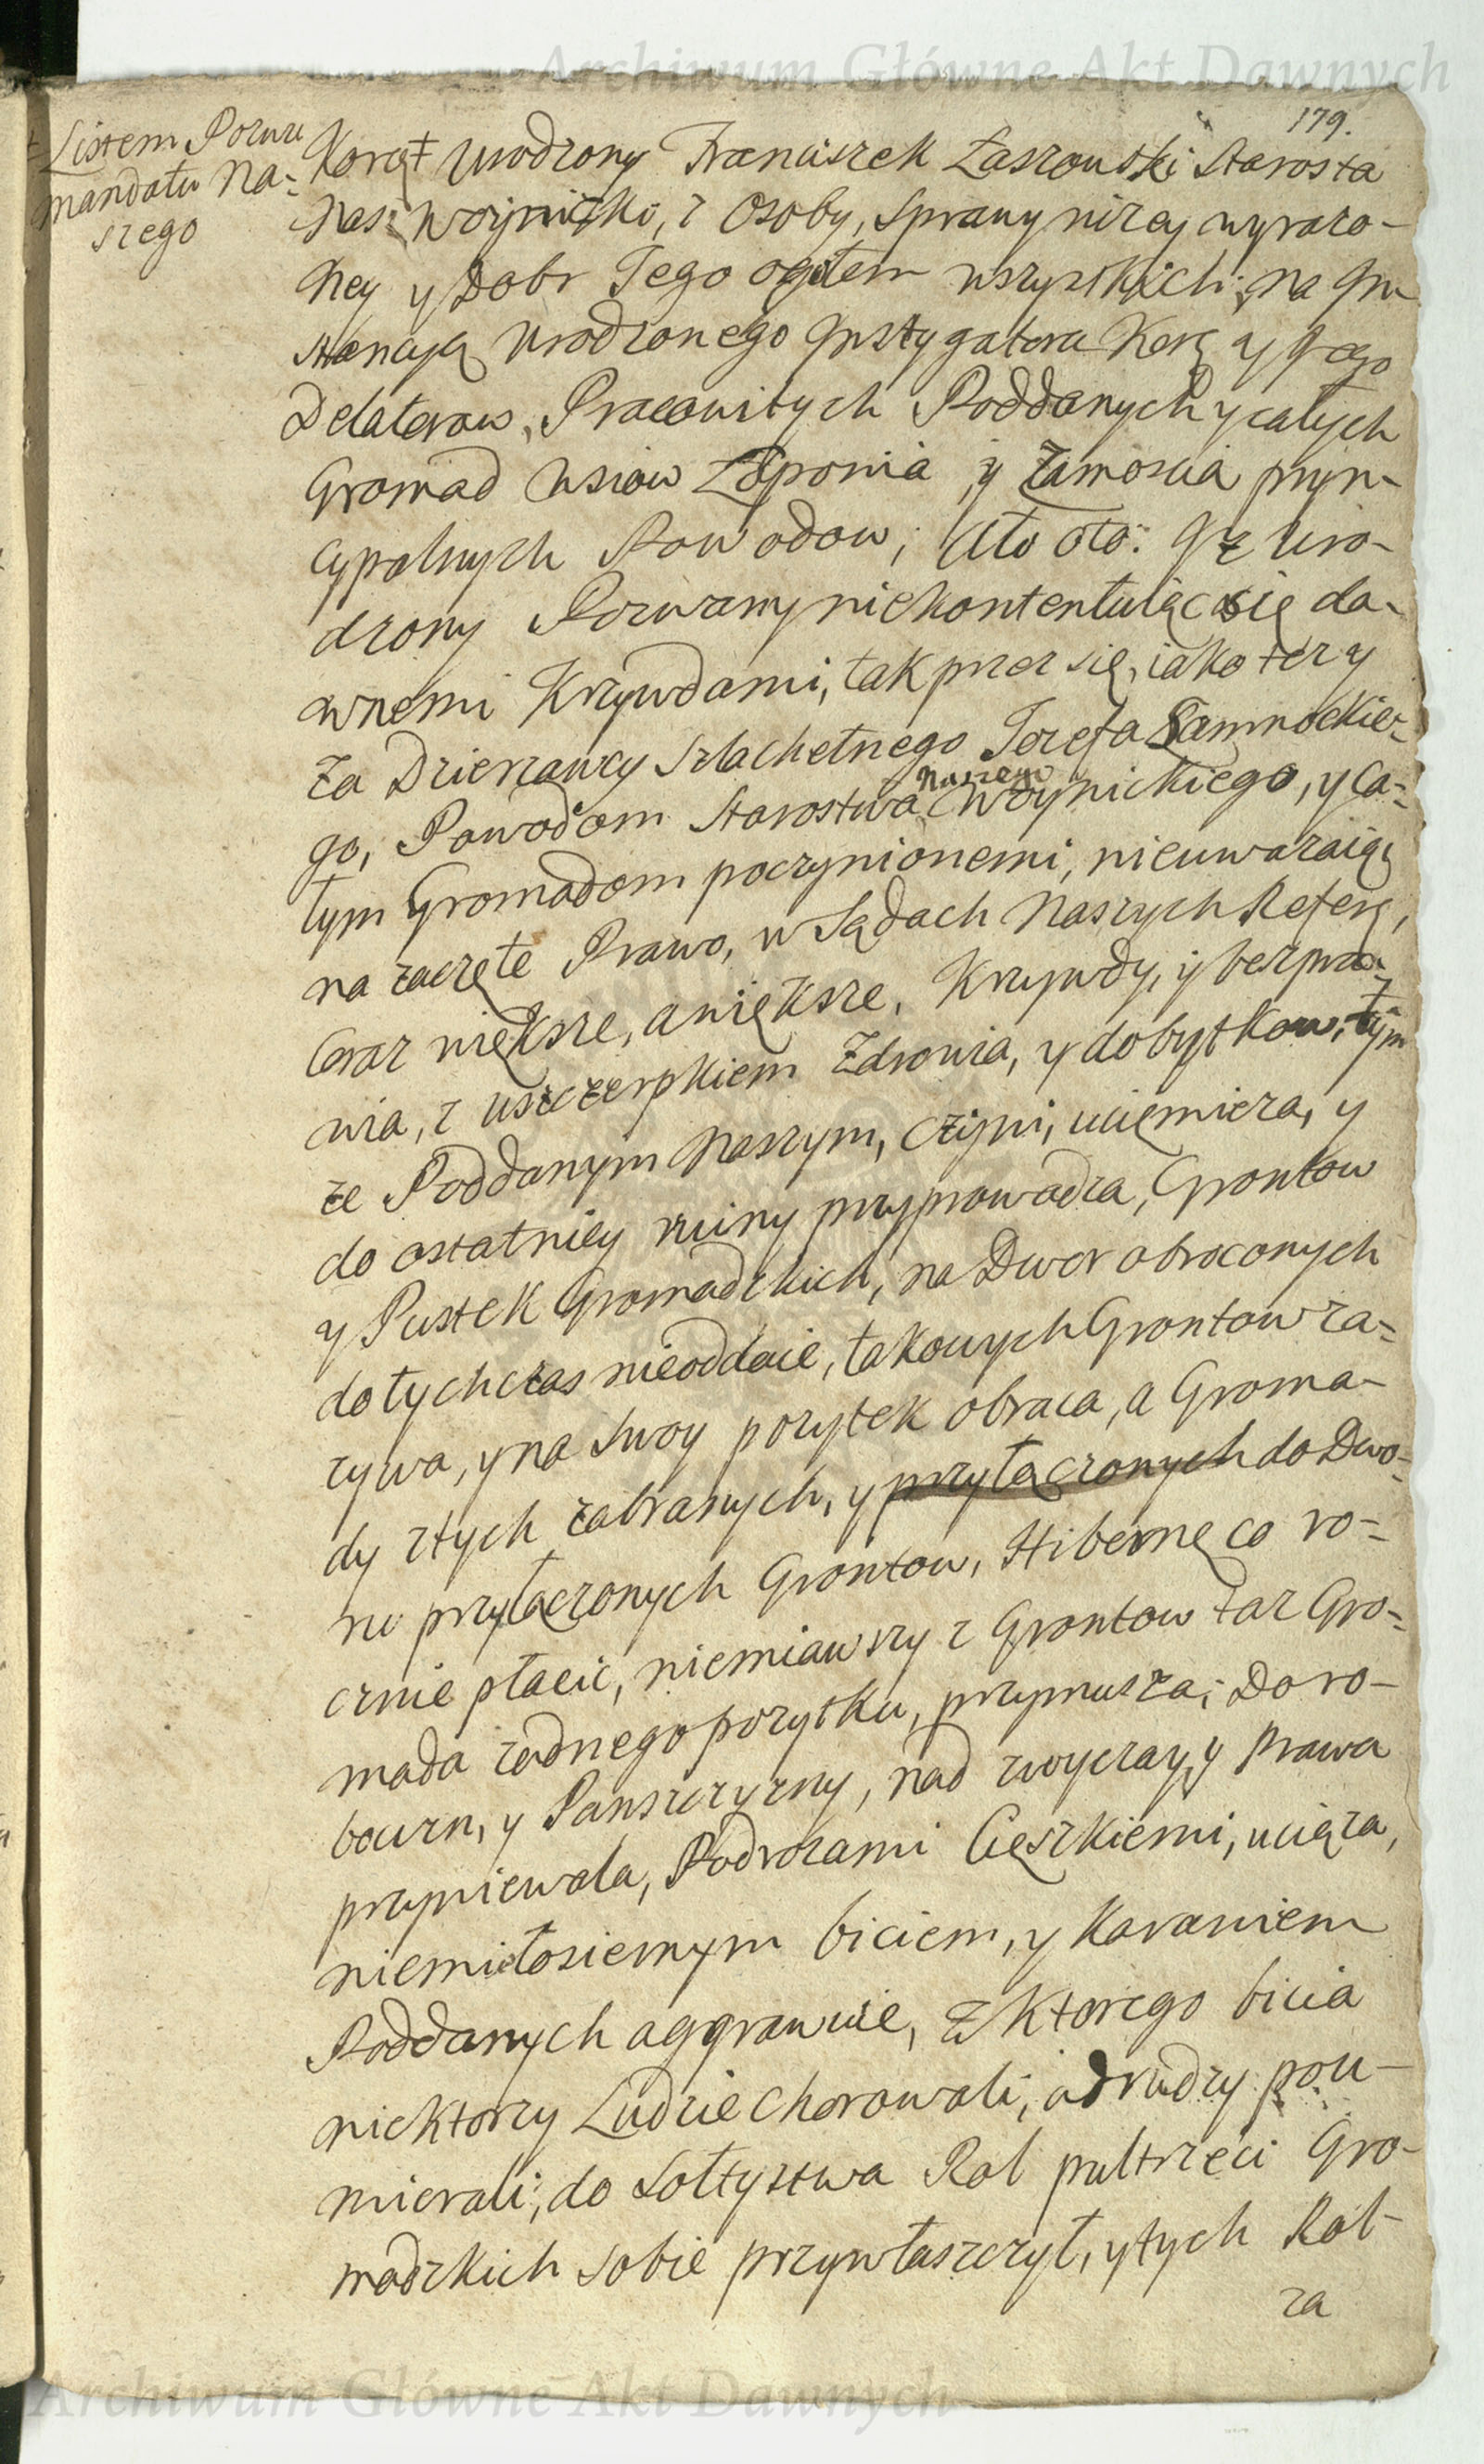 Archiwum Główne Akt Dawnych
179.
‡ Listem Pozwu
mandatu Na-
szego
Korą ‡ Urodzony Franciszek Łaszowski Starosta
Nasz Woynicki, z Osoby, Sprawy nizey wyrazo-
ney y Dobr Jego ogułem wszystkich: na In-
stancyą Urodzonego Instygatora Korą y Jego
Delatorow, Pracowitych Poddanych y całych
Gromad wsiow Łoponia y Zamoscia pryn-
cypalnych Powodow; Ato oto: Jz Uro-
dzony Pozwany niekontentuiąc się da-
wnemi Krzywdami, tak przez się, iako tez y
za Dzierzawcy Szlachetnego Jozefa Samnockie-
go, Powodom Starostwa Naszego Woynickiego, y ca-
łym Gromadom poczynionemi, nieuwazaiąc
na zaczęte Prawo, w Sądach Naszych Referą,
Coraz większe, a większe, Krzywdy, y bezpra-
wia, z uszczerpkiem Zdrowia, y dobytkow, tym
ze Poddanym Naszym, czyni, uciemieza, y
do ostatniey ruiny przyprowadza, Grontow
y Pustek Gromadzkich, na Dwor obroconych
do tych czas nieoddaie, takowych Grontow za-
zywa, y na Swoy pozytek obraca, a Groma-
dy z tych zabranych, y przyłączonych do Dwo-
ru przyłączonych Grontow, Hibernę co ro-
cznie płacic, niemiawszy z Grontow taz Gro-
mada zadnego pozytku, przymusza; Do ro-
bocizn, y Panszczyzny, nad zwyczay, y prawa
przyniewala, Podrozami Cięszkiemi, uciąza,
niemiłosiernym biciem, y Karaniem
Poddanych aggrawuie, z Ktorego bicia
niektorzy Ludzie chorowali, a drudzy pou-
mierali; do Sołtystwa Rol pułtrzeci Gro-
madzkich sobie przywłaszczył, y tych Rol
za
Archiwum Główne Akt Dawnych